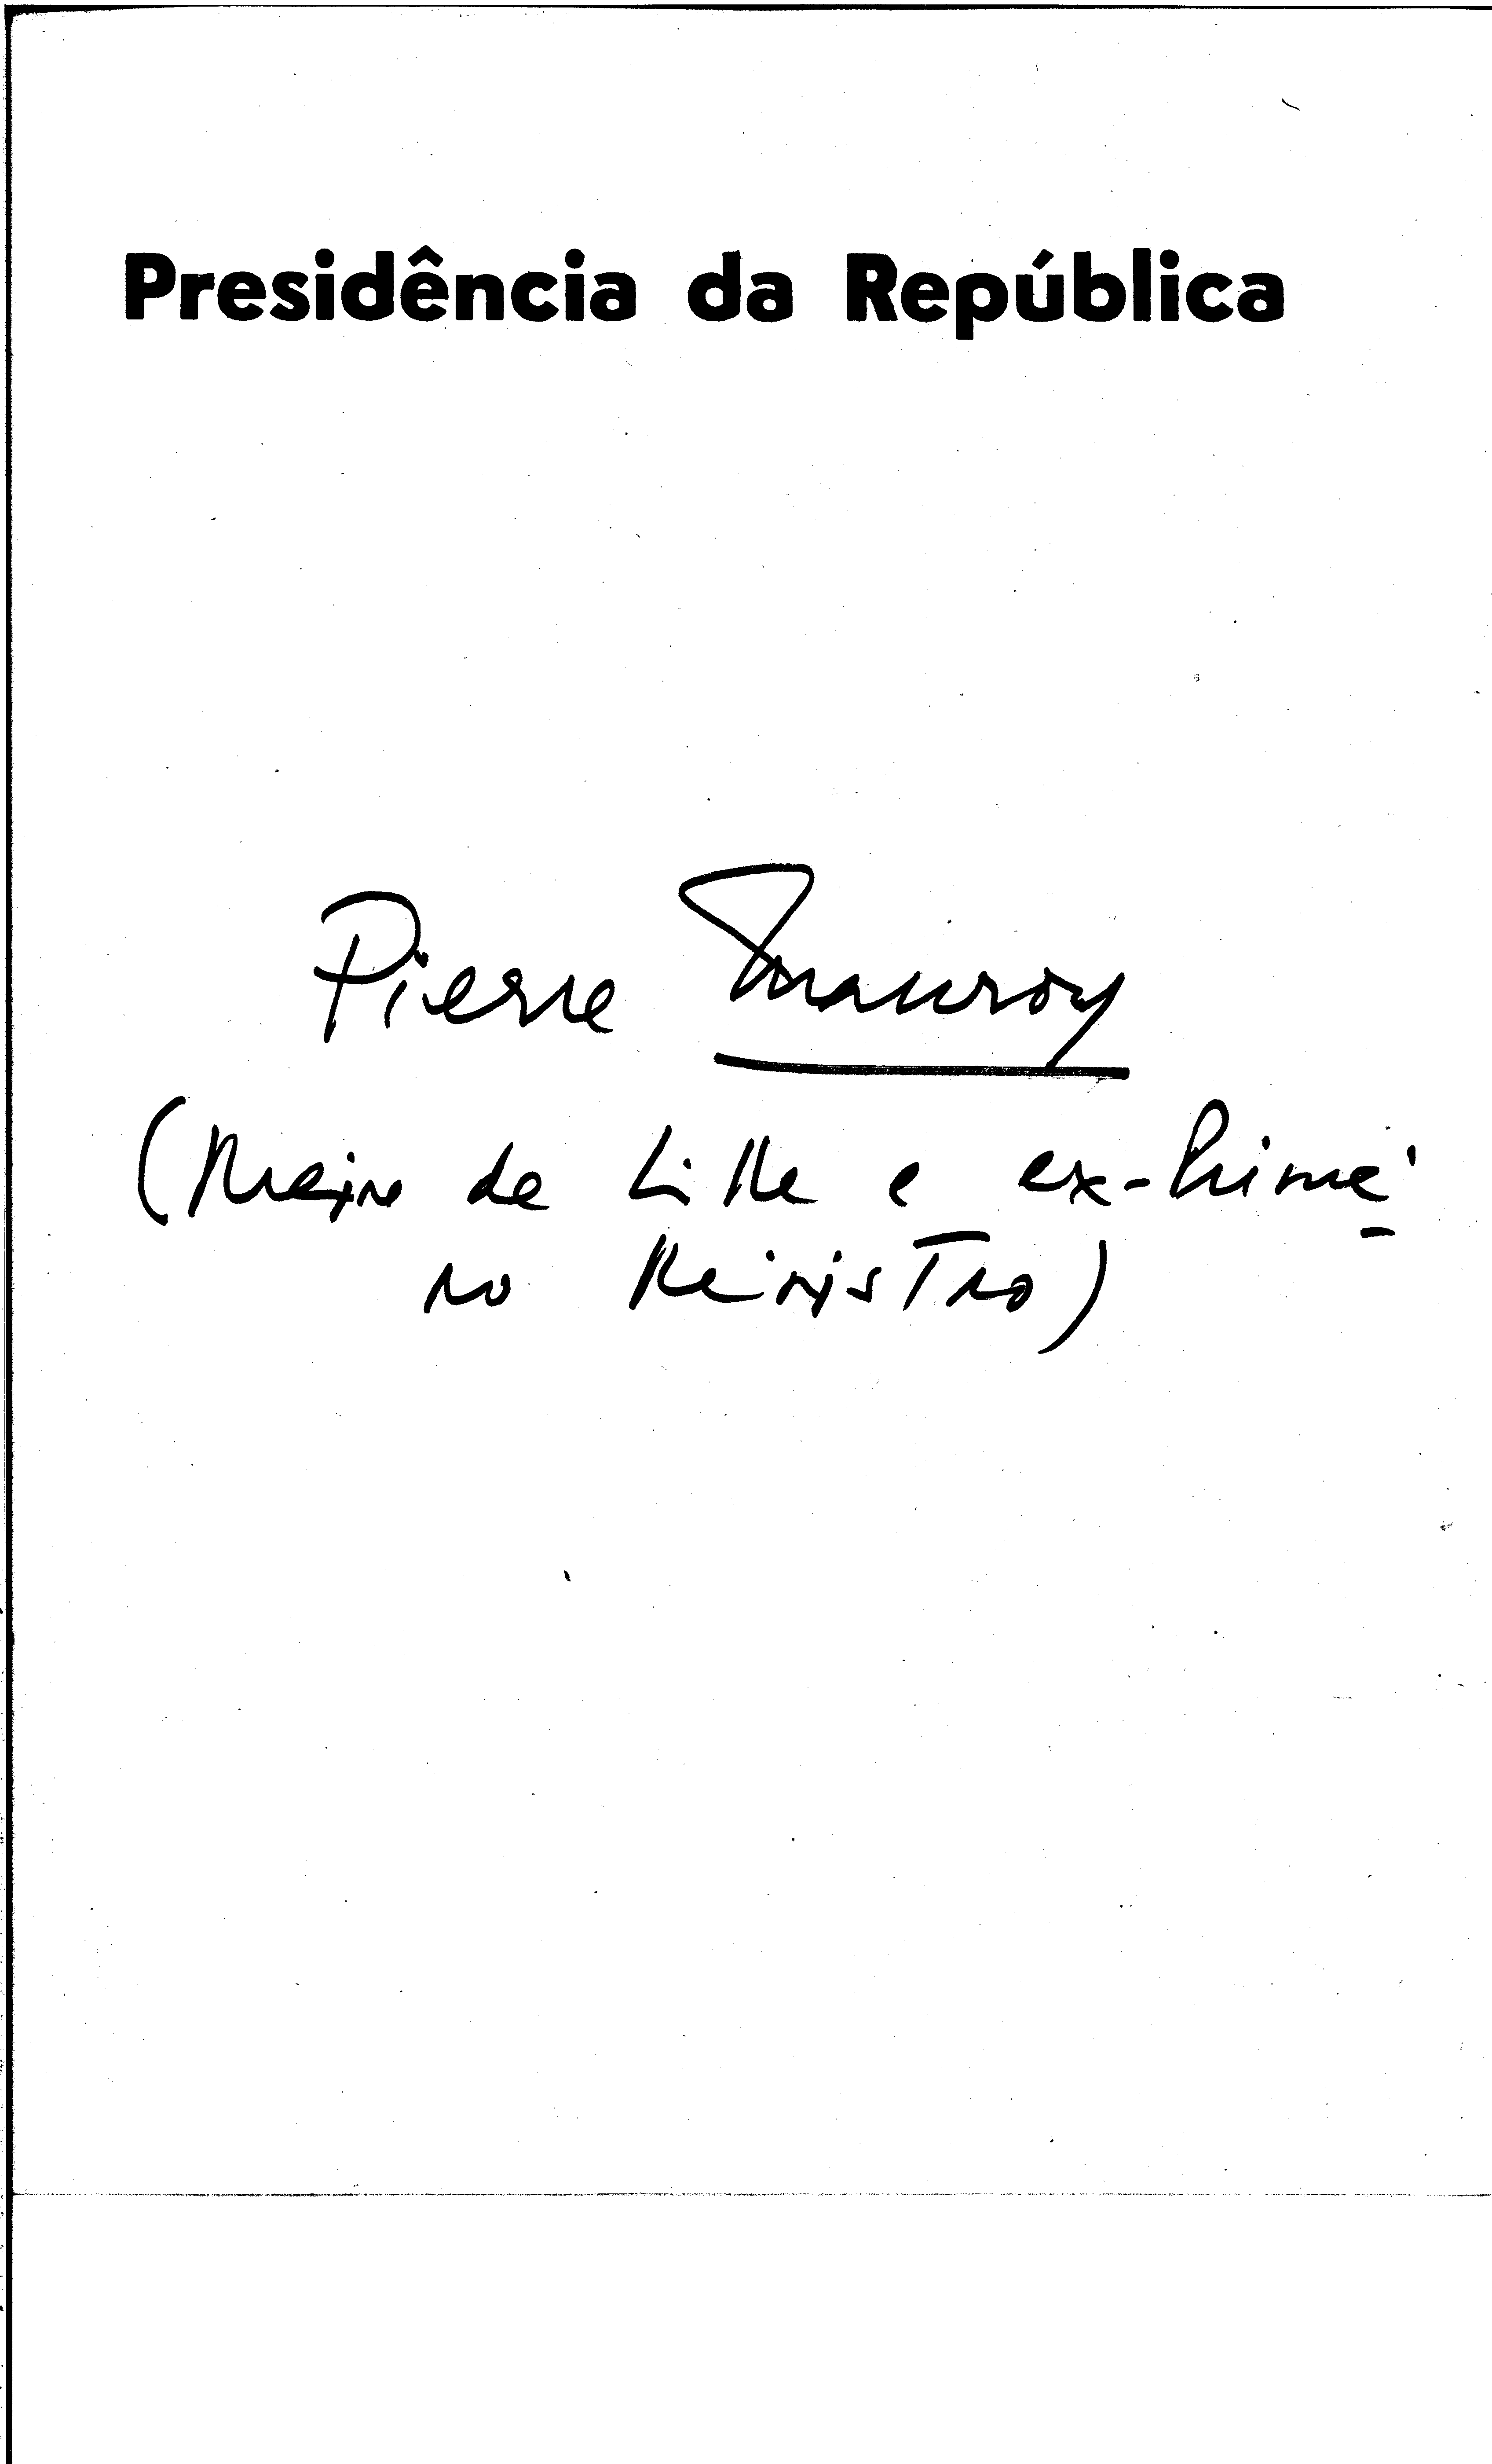 Presidência da República
Pierre Mauroy
(Maire de Lille e ex-Primei
ro Ministro)